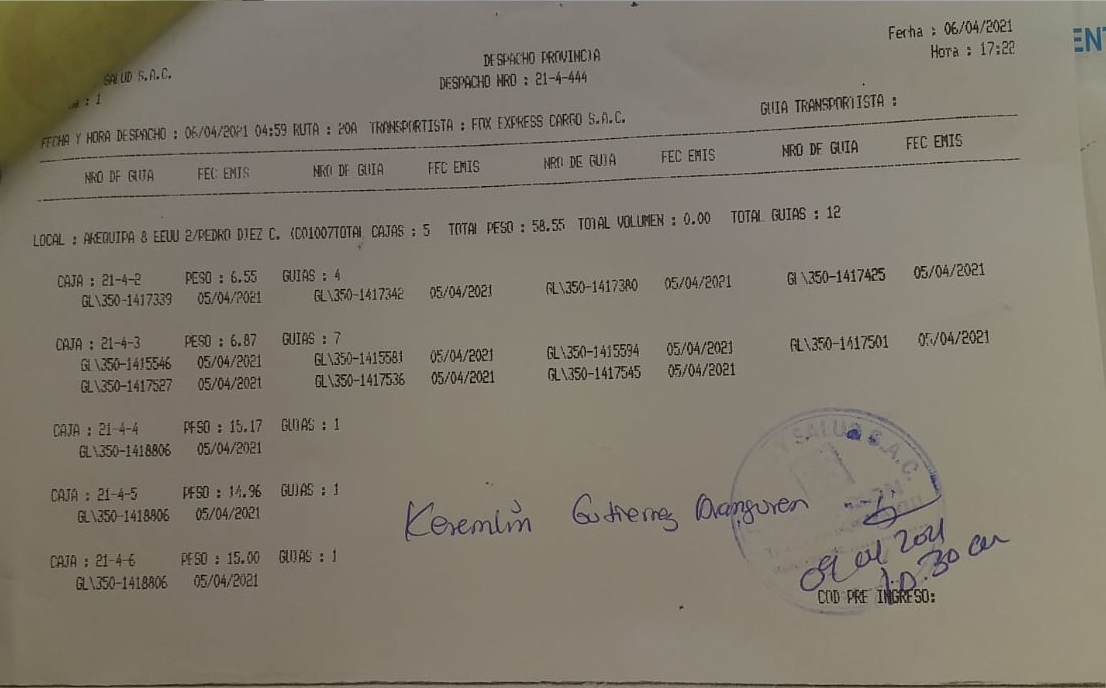 Fecha : 06/04/2021
Hora : 17:22
EN
DESPACHO PROVINCIA
SALUD S.A.C.
DESPACHO NRO : 21-4-444
: 1
GUIA TRANSPORTISTA :
FECHA Y HORA DESPACHO : 06/04/2021 04:59 RUTA : 20A TRANSPORTISTA : FOX EXPRESS CARGO S.A.C.
NRO DE GUIA FEC EMIS NRO DE GUIA FEC EMIS NRO DE GUIA FEC EMIS NRO DE GUIA FEC EMIS
LOCAL : AREQUIPA 8 EEUU 2/PEDRO DIEZ C. (C01007TOTAL CAJAS : 5 TOTAL PESO : 58.55 TOTAL VOLUMEN : 0.00 TOTAL GUIAS : 12
CAJA : 21-4-2 PESO : 6.55 GUIAS : 4
GL\350-1417339 05/04/2021 GL\350-1417342 05/04/2021 GL\350-1417380 05/04/2021 GL\350-1417425 05/04/2021
CAJA : 21-4-3 PESO : 6.87 GUIAS : 7
GL\350-1415546 05/04/2021 GL\350-1415581 05/04/2021 GL\350-1415594 05/04/2021 GL\350-1417501 05/04/2021
GL\350-1417527 05/04/2021 GL\350-1417536 05/04/2021 GL\350-1417545 05/04/2021
CAJA : 21-4-4 PESO : 15.17 GUIAS : 1
GL\350-1418806 05/04/2021
CAJA : 21-4-5 PESO : 14.96 GUIAS : 1
GL\350-1418806 05/04/2021
CAJA : 21-4-6 PESO : 15.00 GUIAS : 1
GL\350-1418806 05/04/2021
Y SALUD S.A.C.
Keremlin Gutierrez Aranguren
09 04 2021
10:30 am
COD PRE INGRESO: